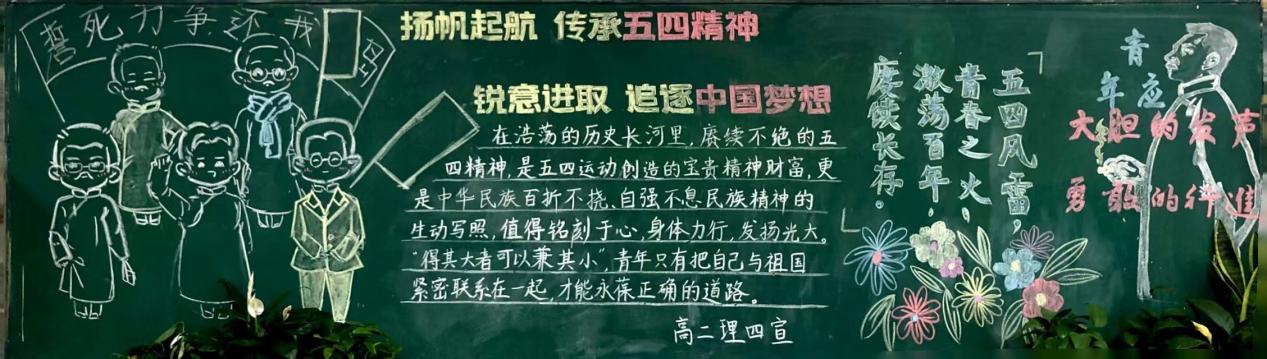 誓死力争还我
扬帆起航 传承五四精神
锐意进取 追逐中国梦想
在浩荡的历史长河里,赓续不绝的五
四精神,是五四运动创造的宝贵精神财富,更
是中华民族百折不挠、自强不息民族精神的
生动写照,值得铭刻于心,身体力行,发扬光大。
“得其大者可以兼其小”,青年只有把自己与祖国
紧密联系在一起,才能永葆正确的道路。
高二理四宣
五四风雷,
青春之火,
激荡百年,
赓续长存。
青
年应
大胆的发声
勇敢的行進